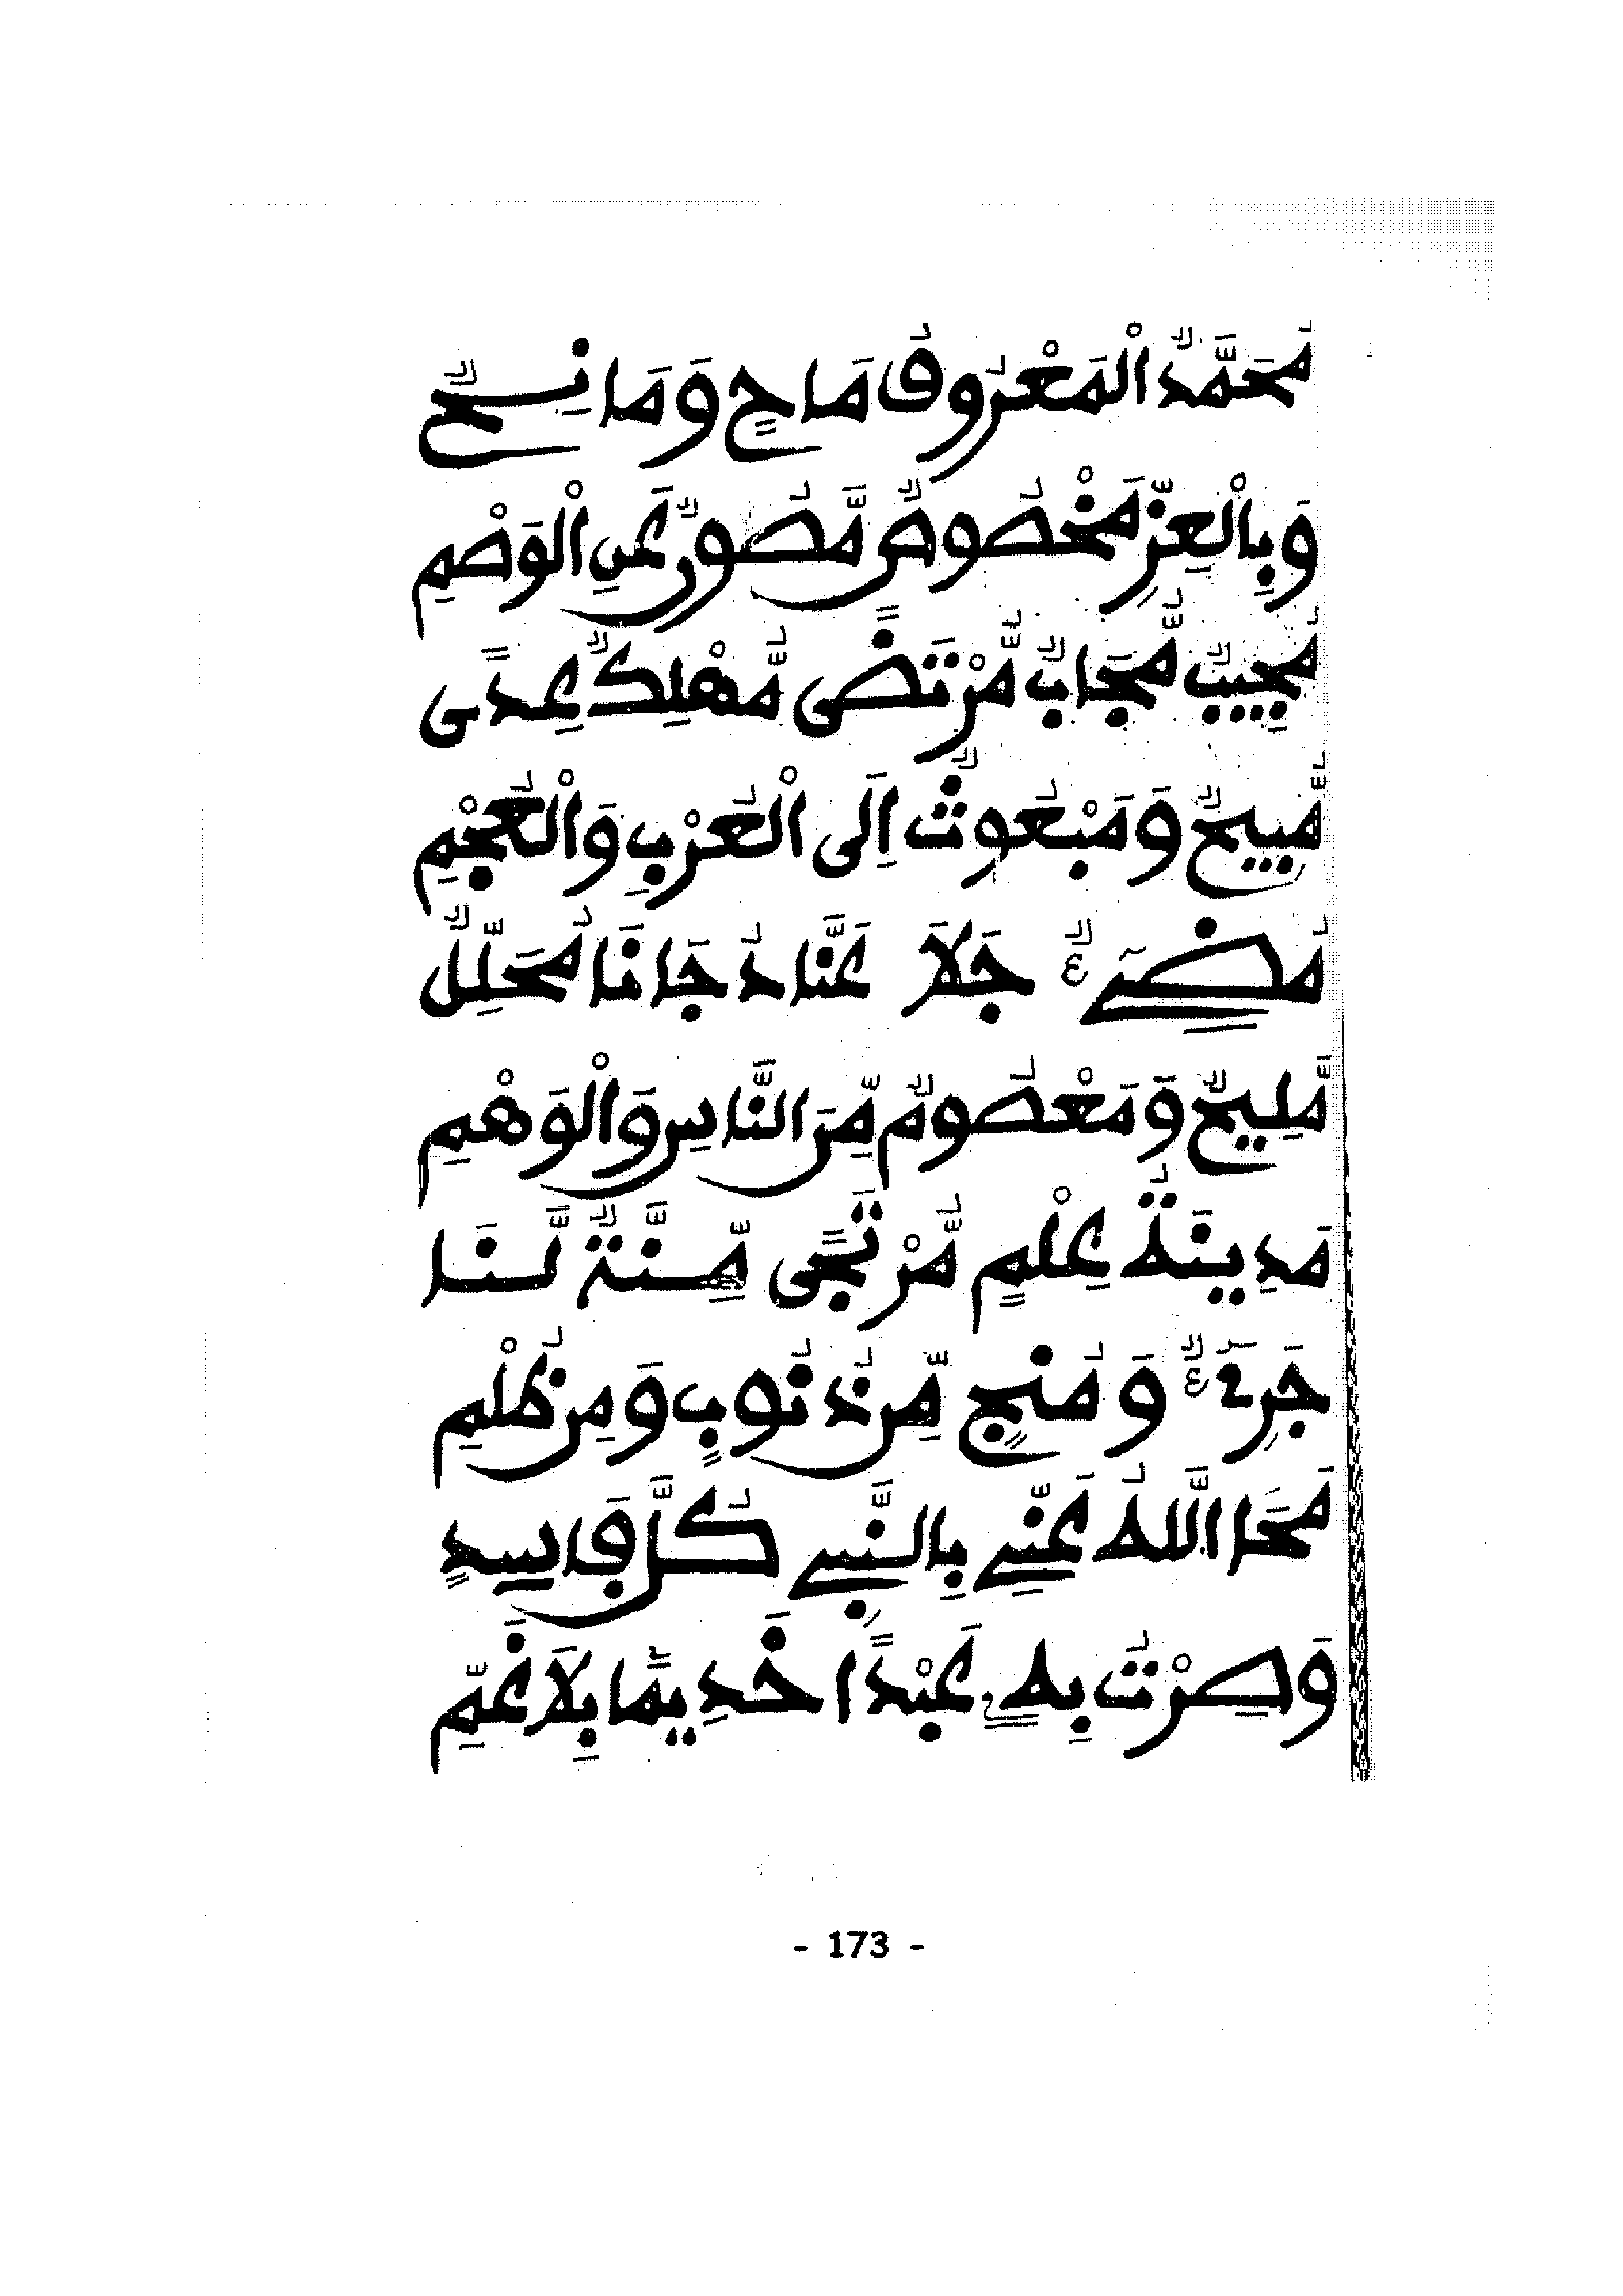 مُحَمَّدٌ الْمَعْرُوفُ مَاحٍ وَمَانِحٌ
وَبِالْعِزِّ مَخْصُوصٌ مَّصُونٌ عَنِ الْوَصْمِ
مُجِيبٌ مُّجَابٌ مُّرْتَضًى مُّهْلِكٌ عِدًى
مُّبِيحٌ وَمَبْعُوثٌ اِلَى الْعُرْبِ وَالْعُجْمِ
مُضِيءٌ جَلَا عَنَّا دُجَانَا مُحَلِّلٌ
مَّلِيحٌ وَمَعْصُومٌ مِّنَ النَّاسِ وَالْوَهْمِ
مَدِينَةُ عِلْمٍ مُّرْتَجًى مِّنَّةٌ لَّنَا
جَرِيءٌ وَمُنْجٍ مِّن ذُنُوبٍ وَمِن ظُلْمِ
مَحَا اللَّهُ عَنِّي بِالنَّبِي كُلَّ فَاسِدٍ
وَصِرْتُ بِهِ عَبْدًا خَدِيمًا بِلَا غَمِّ
- 173 -